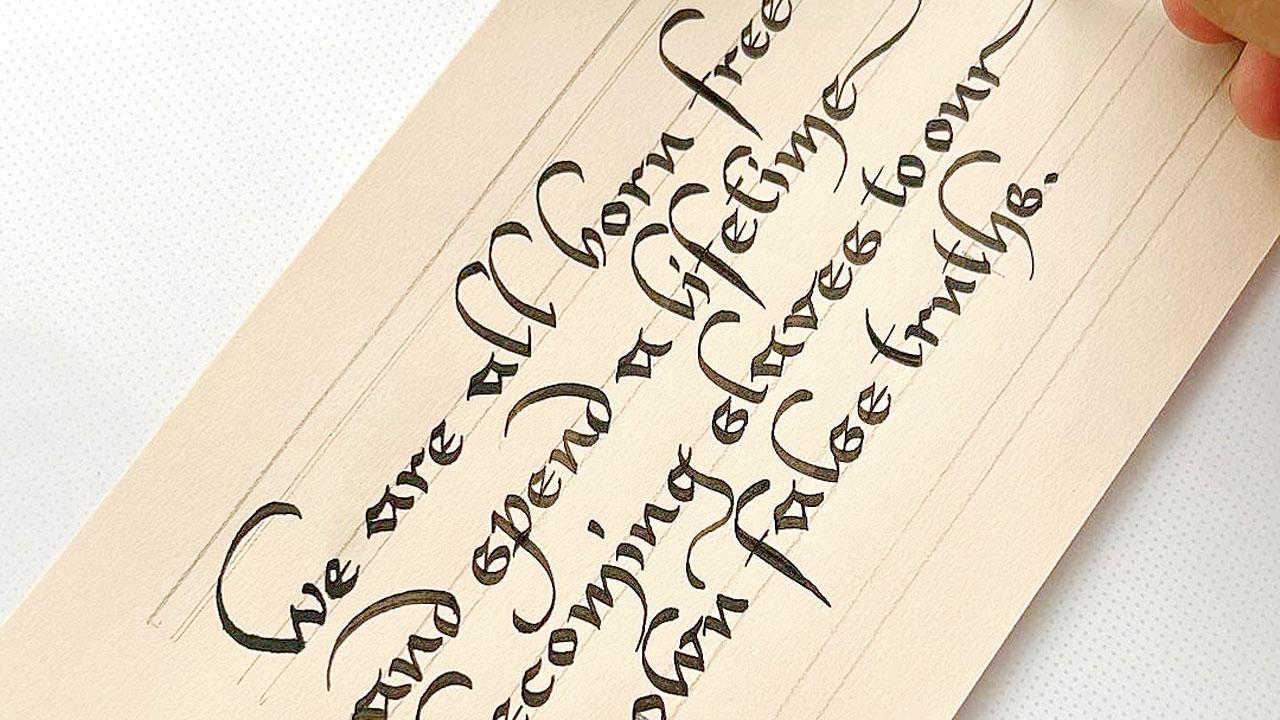 We are all born free
and spend a lifetime
becoming slaves to our
own false truths.